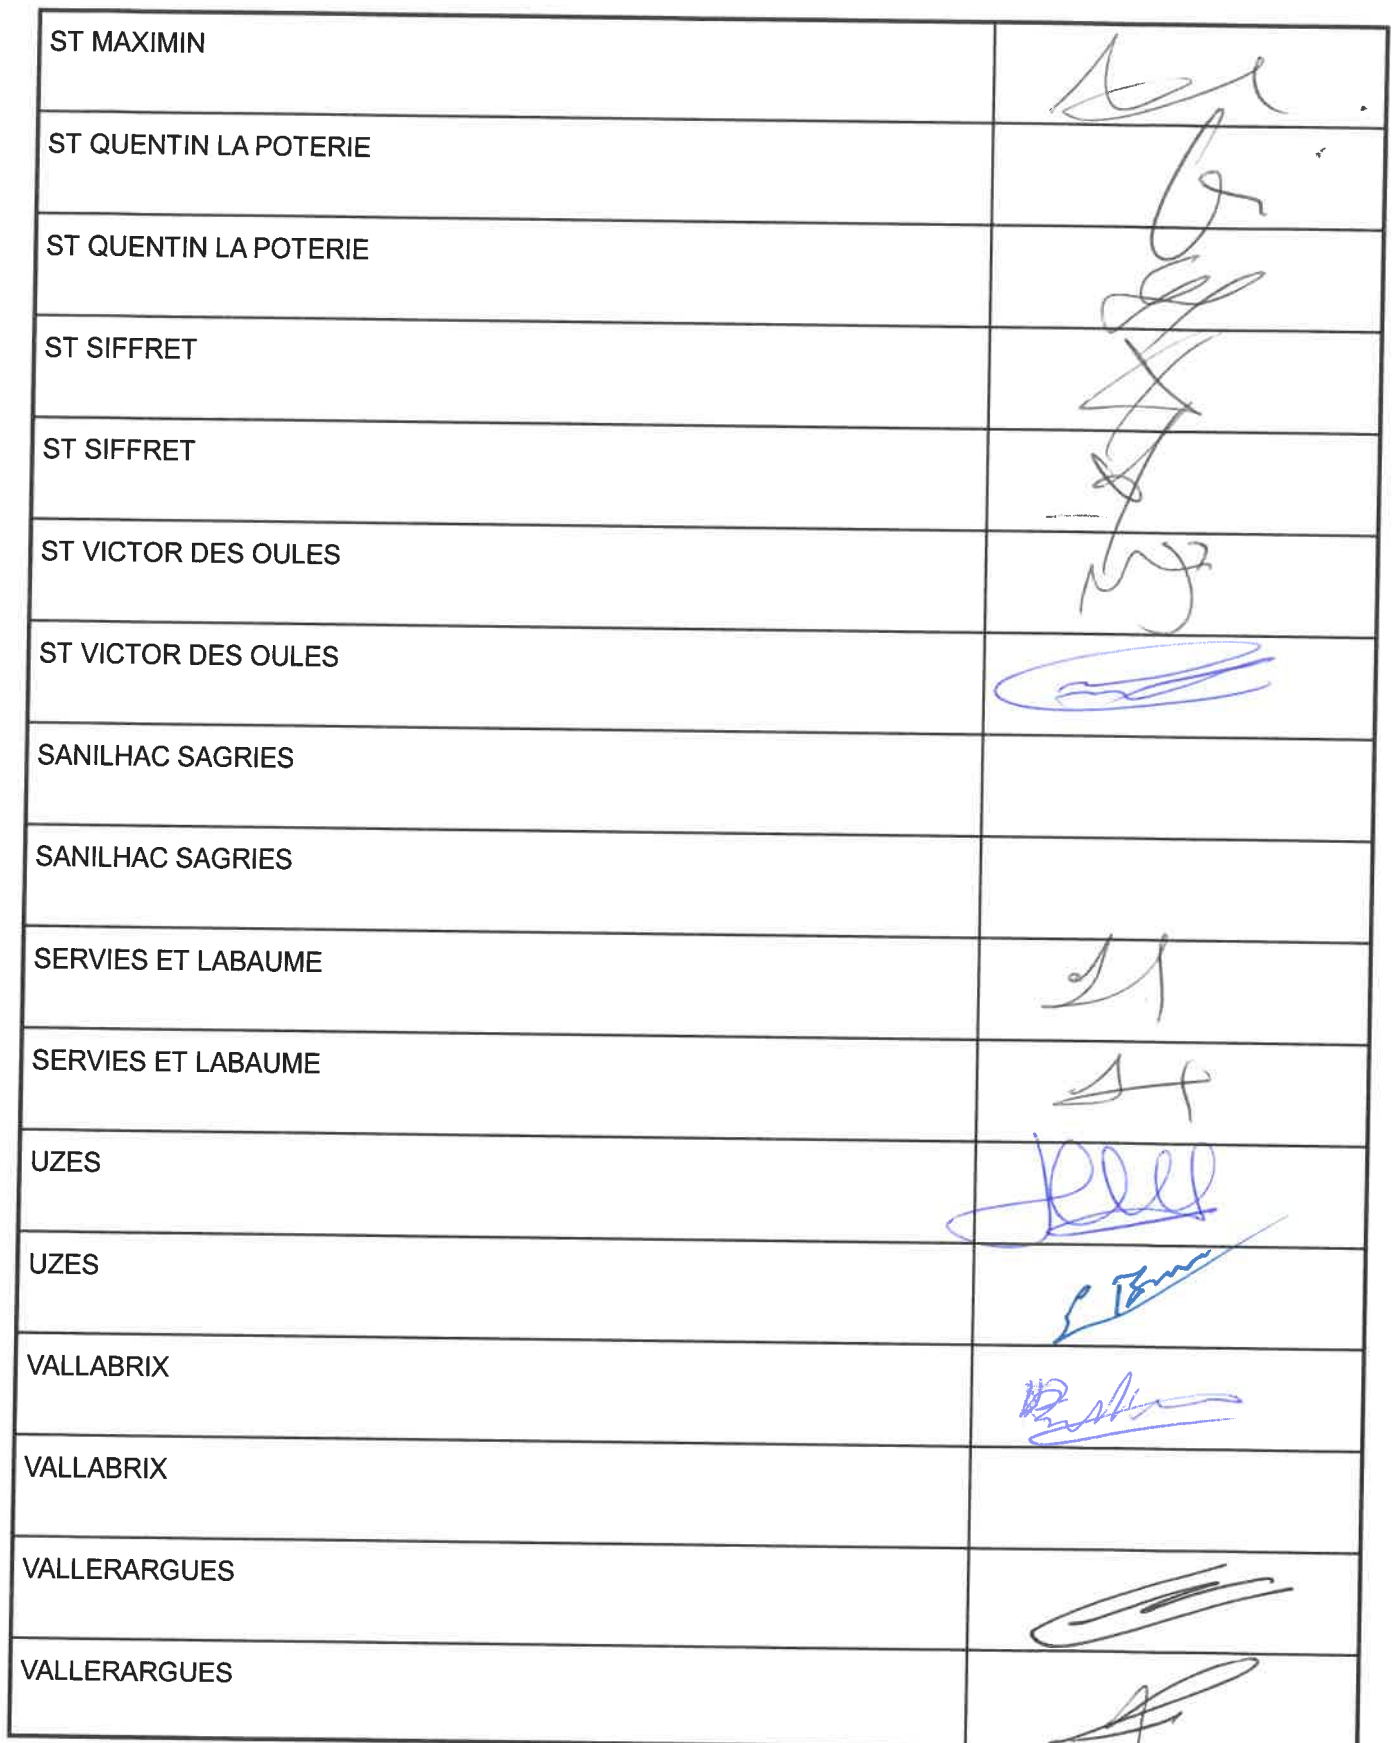 ST MAXIMIN
ST QUENTIN LA POTERIE
ST QUENTIN LA POTERIE
ST SIFFRET
ST SIFFRET
ST VICTOR DES OULES
ST VICTOR DES OULES
SANILHAC SAGRIES
SANILHAC SAGRIES
SERVIES ET LABAUME
SERVIES ET LABAUME
UZES
UZES
VALLABRIX
VALLABRIX
VALLERARGUES
VALLERARGUES